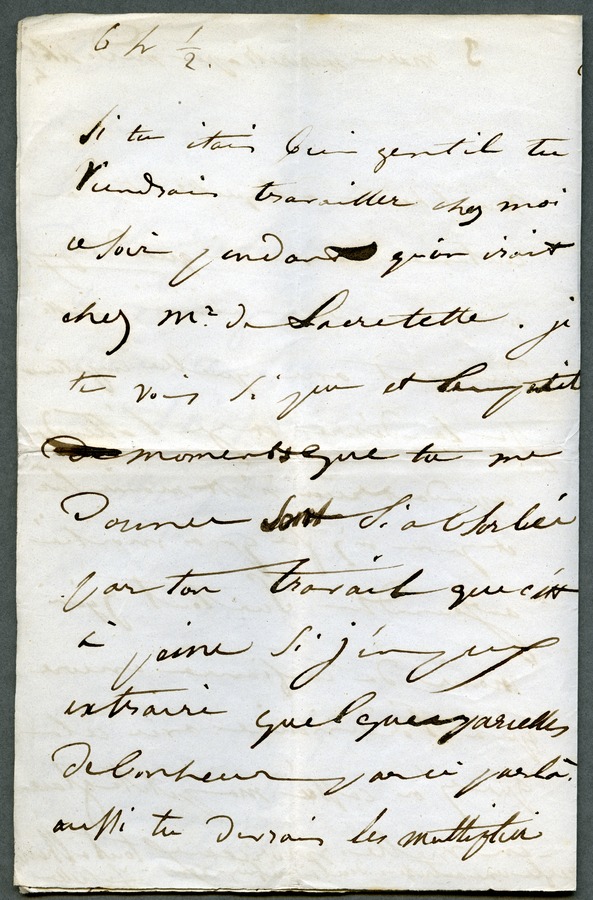 6 h ½.
Si tu étais bien gentil tu
viendrais travailler chez moi
ce soir pendant qu'on irait
chez Mr de Lacretelle. je
te vois si peu et les petits
moments que tu me
donnes sont si absorbés
par ton travail que c'est
à peine si j'en peux
extraire quelques parcelles
de bonheur par ci par là.
aussi tu devrais les multiplier